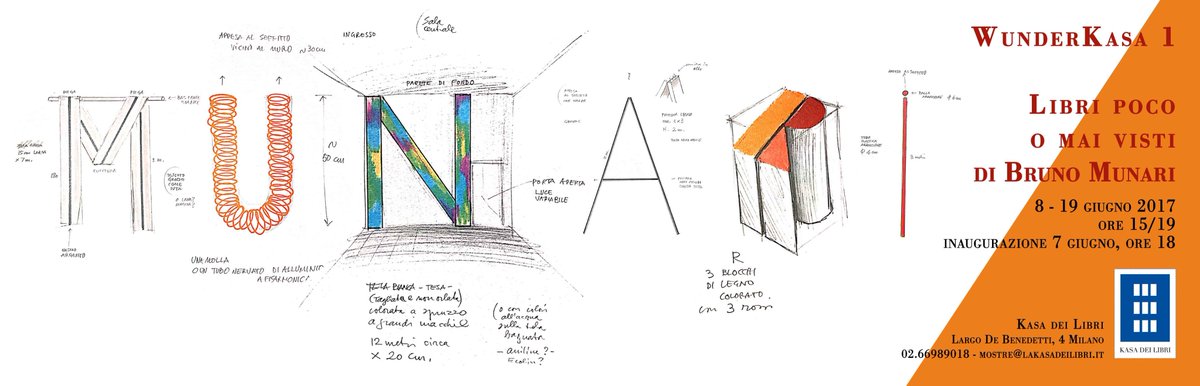 APPESA AL SOFFITTO
VICINO AL MURO
N 30 cm
INGRESSO
(Sala
centrale
PARETE DI FONDO
M U N A R I
PIEGA
PIEGA
N
50 cm
PORTA APERTA
LUCE
VARIABILE
UNA MOLLA
O UN TUBO NERVATO DI ALLUMINIO
A FISARMONICA
TELA BIANCA - TESA -
(tagliata e non orlata)
colorata a spruzzo
a grandi macchie
12 metri circa
X 20 cm.
(o con colori
all'acqua
sulla tela
bagnata
- aniline? -
Ecolin?
R
3 BLOCCHI
DI LEGNO
COLORATO.
con 3 rossi
WunderKasa 1
Libri poco
o mai visti
di Bruno Munari
8 - 19 giugno 2017
ore 15/19
inaugurazione 7 giugno, ore 18
Kasa dei Libri
Largo De Benedetti, 4 Milano
02.66989018 - mostre@lakasadeilibri.it
KASA DEI LIBRI